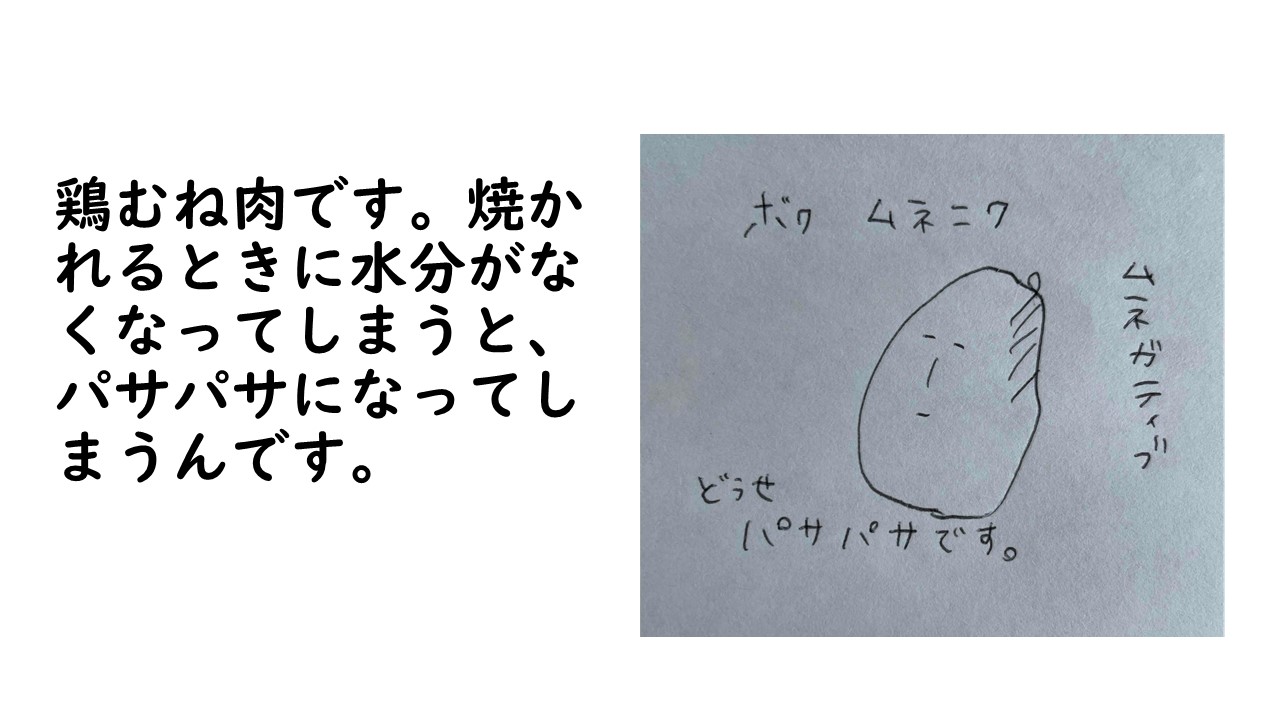 鶏むね肉です。焼か
れるときに水分がな
くなってしまうと、
パサパサになってし
まうんです。
ボク ムネニク
ムネガティブ
どうせ
パサパサです。